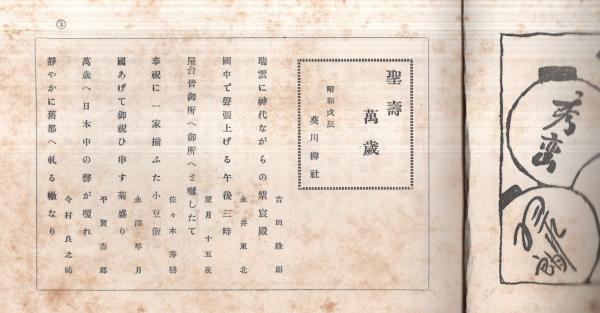 聖壽
萬歲
昭和戊辰
葵川柳社
瑞雲に神代ながらの紫宸殿
吉田綠朗
國中で聲張上げる午後三時
永井東北
屋台皆御所へ御所へさ囃したて
望月十五夜
奉祝に一家揃ふた小豆飯
佐々木秀巒
國あげて御祝ひ申す菊盛り
永澤琴月
萬歲へ日本中の聲が嗄れ
平賀壽郎
靜やかに舊都へ軋る轍なり
今村良之祐
③
秀巒